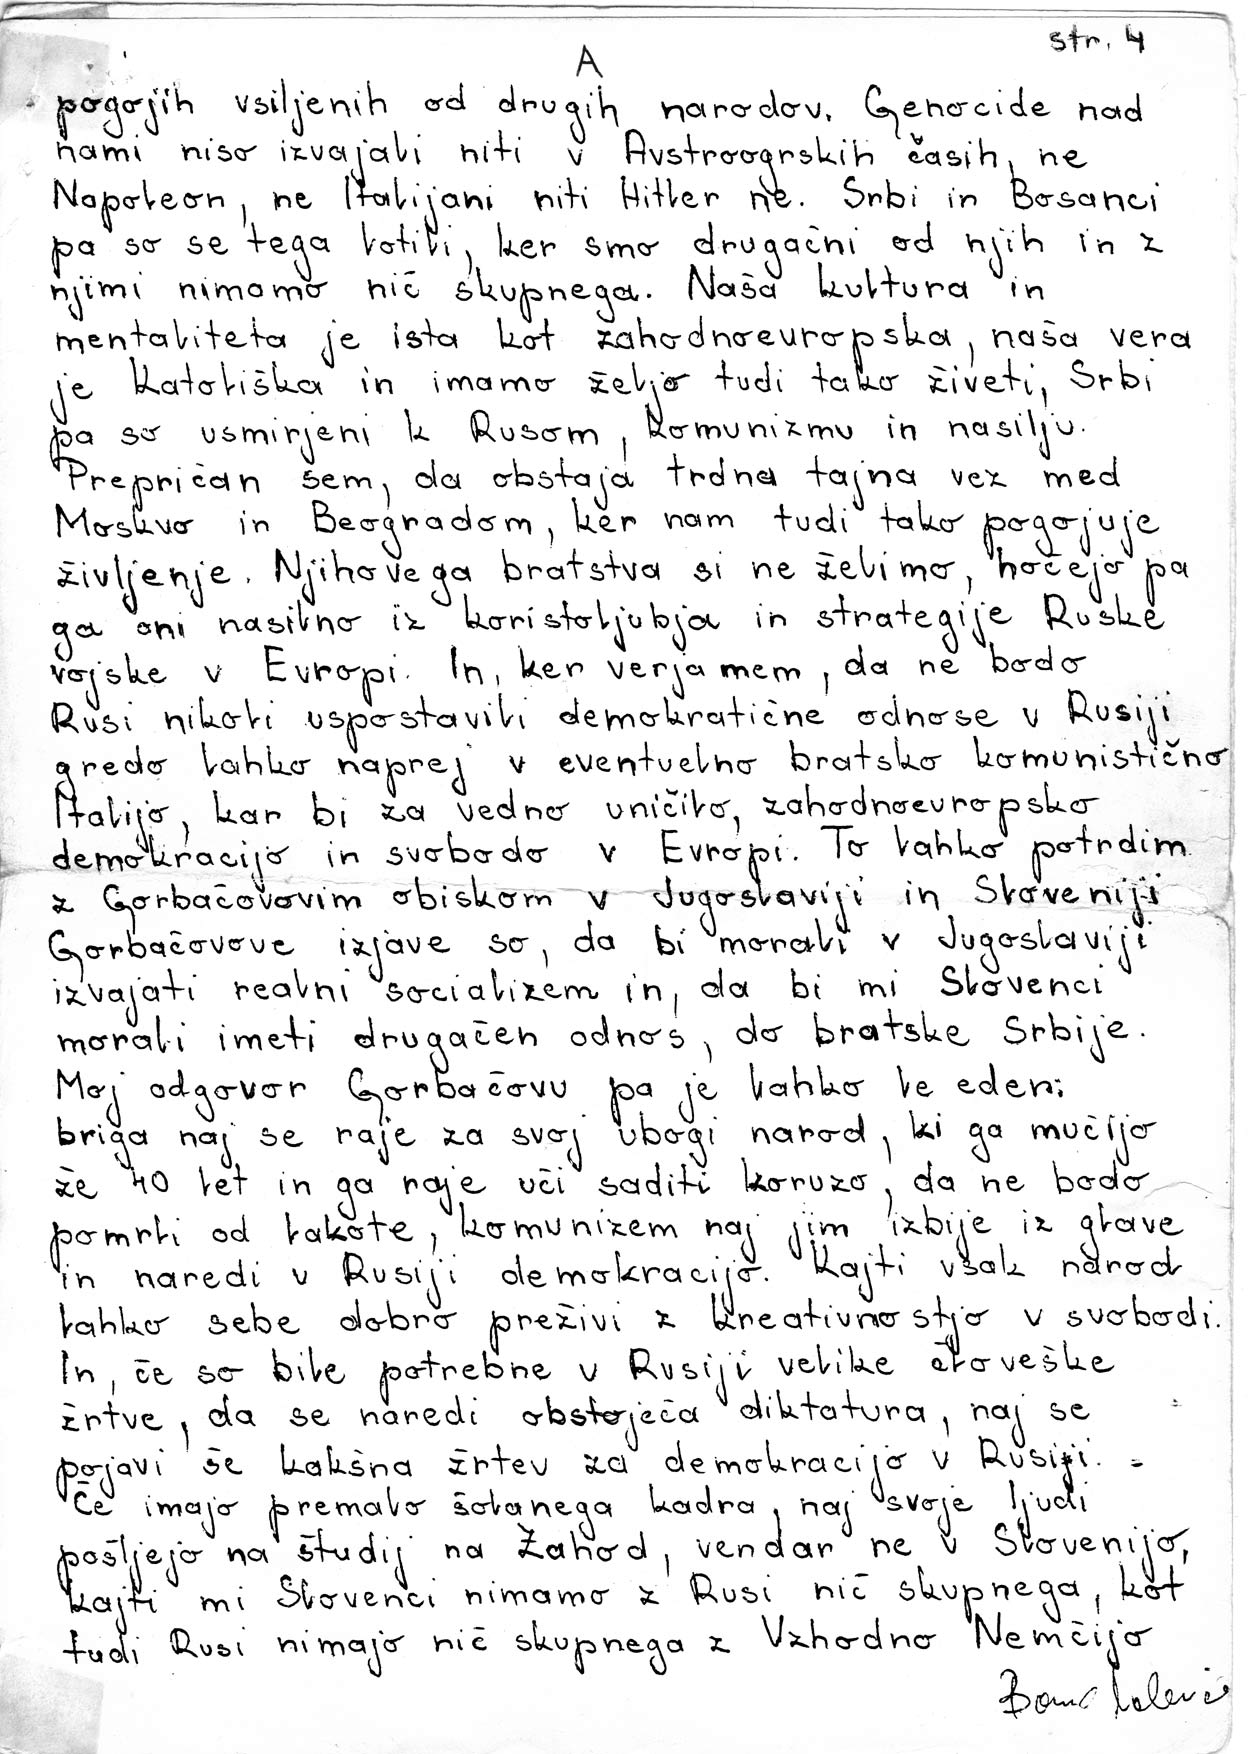 str. 4
A
pogojih vsiljenih od drugih narodov. Genocide nad
nami niso izvajali niti v Avstroogrskih časih, ne
Napoleon, ne Italijani niti Hitler ne. Srbi in Bosanci
pa so se tega lotili, ker smo drugačni od njih in z
njimi nimamo nič skupnega. Naša kultura in
mentaliteta je ista kot zahodnoeuropska, naša vera
je Katoliška in imamo željo tudi tako živeti, Srbi
pa so usmirjeni k Rusom, komunizmu in nasilju.
Prepričan sem, da obstaja trdna tajna vez med
Moskvo in Beogradom, ker nam tudi tako pogojuje
življenje. Njihovega bratstva si ne želimo, hočejo pa
ga oni nasilno iz koristoljubja in strategije Ruske
vojske v Evropi. In, ker verjamem, da ne bodo
Rusi nikoli uspostavili demokratične odnose v Rusiji
gredo lahko naprej v eventuelno bratsko komunistično
Italijo, kar bi za vedno uničilo, zahodnoevropsko
demokracijo in svobodo v Evropi. To lahko potrdim
z Gorbačovovim obiskom v Jugoslaviji in Sloveniji
Gorbačovove izjave so, da bi morali v Jugoslaviji
izvajati realni socializem in, da bi mi Slovenci
morali imeti drugačen odnos, do bratske Srbije.
Moj odgovor Gorbačovu pa je lahko le eden:
briga naj se raje za svoj ubogi narod, ki ga mučijo
že 40 let in ga raje uči saditi koruzo, da ne bodo
pomrli od lakote, komunizem naj jim izbije iz glave
in naredi v Rusiji demokracijo. Kajti vsak narod
lahko sebe dobro preživi z kreativnostjo v svobodi.
In, če so bile potrebne v Rusiji velike človeške
žrtve, da se naredi obstoječa diktatura, naj se
pojavi še kakšna žrtev za demokracijo v Rusiji. -
Če imajo premalo šolanega kadra, naj svoje ljudi
pošljejo na študij na Zahod, vendar ne v Slovenijo,
kajti mi Slovenci nimamo z Rusi nič skupnega, kot
tudi Rusi nimajo nič skupnega z Vzhodno Nemčijo